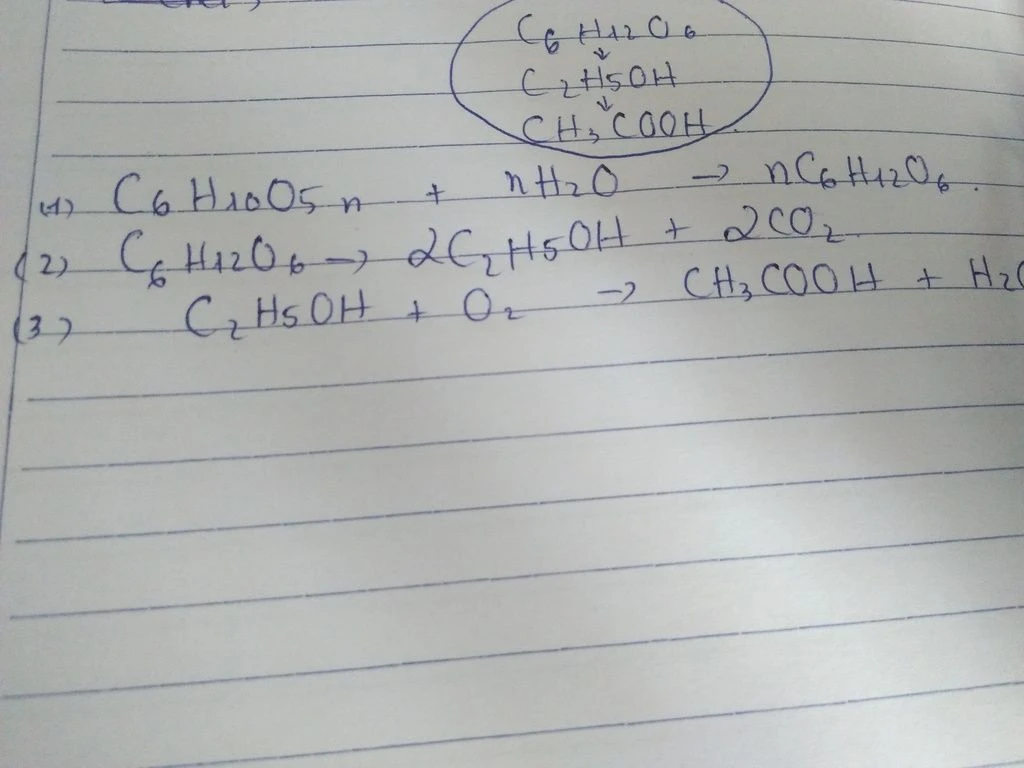 C₆H₁₂O₆
↓
C₂H₅OH
↓
CH₃COOH
(1) C₆H₁₀O₅ₙ + nH₂O → nC₆H₁₂O₆.
(2) C₆H₁₂O₆ → 2C₂H₅OH + 2CO₂
(3) C₂H₅OH + O₂ → CH₃COOH + H₂O